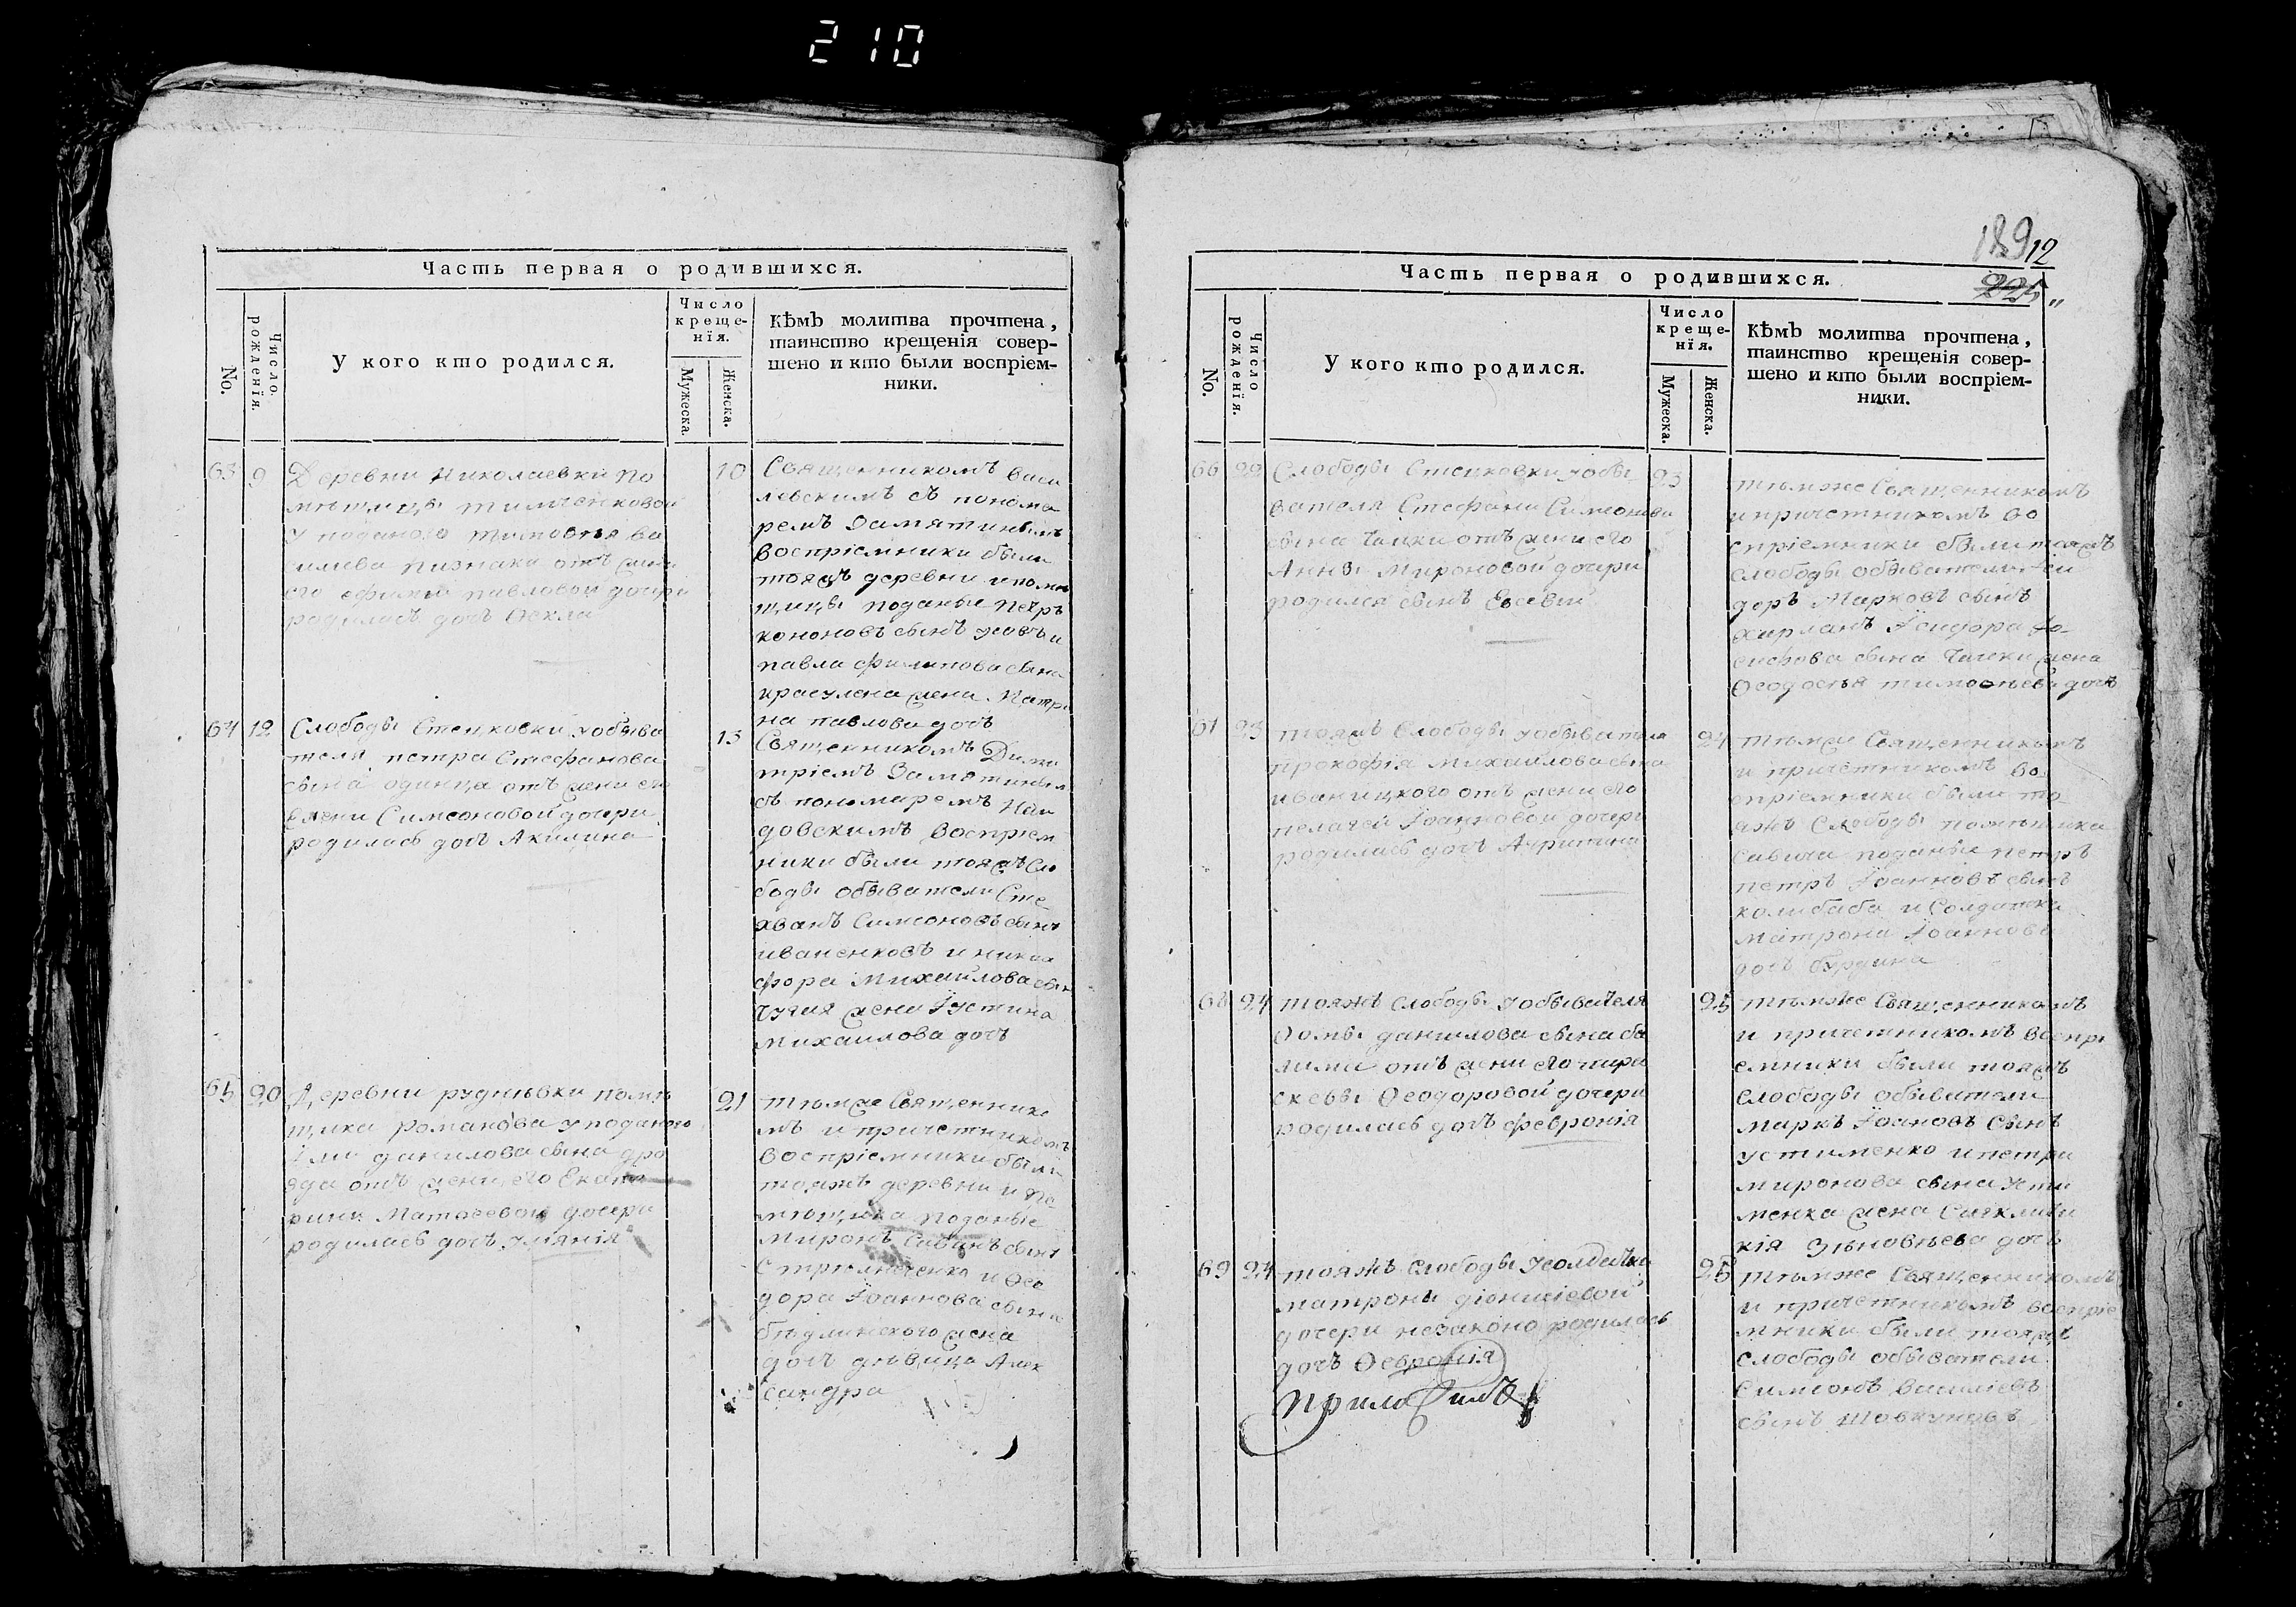 210
Часть первая о родившихся.
No.
Число рожденїя.
У кого кто родился.
Число
креще-
нїя.
Мужеска.
Женска.
Кѣмъ молитва прочтена,
таинство крещенія совер-
шено и кто были воспріем-
ники.
63 9 Деревни Николаевки по
мѣщицы тимченковой
у поданого тимофея ва
силева отъ жены
его павловой дочери
родиласъ дочъ Өекла
10 Священникомъ Васи
левскимъ съ понома
ремъ Замятинымъ
воспріемники были
тояжъ деревни и поме
щицы поданые Петръ
кононовъ сынъ и
павла филипова сына
жена
на павлова дочъ
64 12 Слободы Стецковки уобыва
теля петра Стефанова
сына одинца отъ жены его
Елены Симеоновой дочери
родиласъ дочъ Акилина
13 Священникомъ Дими
тріемъ Замятиным
съ пономаремъ Наи
довскимъ воспріем
ники были тояжъ Сло
боды обыватели Сте
хванъ Симеоновъ сынъ
иваненковъ и ники
фора Михаилова сын
жена Іустина
михаилова дочъ
65 20 Деревни руднѣвки помѣ
щика романова у поданого
Іли данилова сына дро
зда отъ жены его Екате
рины Матвеевой дочери
родиласъ дочъ Уліянія
21 тѣмже Священнико
мъ и причетникомъ
воспріемники были
тояжъ деревни и по
мѣщика поданые
Миронъ Савинъ сынъ
и Өео
дора Іоаннова сына
жена
дочъ дѣвица Алек
сандра
189 12
225
Часть первая о родившихся.
No.
Число рожденїя.
У кого кто родился.
Число
креще-
нїя.
Мужеска.
Женска.
Кѣмъ молитва прочтена,
таинство крещенія совер-
шено и кто были воспріем-
ники.
66 22 Слободы Стецковки уобы
вателя Стефана Симеонова
сына Чалки отъ жены его
Анны Мироновой дочери
родился сынъ Евсевій
23 тѣмже Священникомъ
и причетникомъ во
спріемники были тояжъ
Слободы обыватели Іси
доръ Марковъ сынъ
Ісидора Іо-
сифова сына Чалки жена
Өеодосья тимофѣева дочъ
67 23 тояжъ Слободы уобывателя
прокофія михаилова сына
иваницкого отъ жены его
пелагеи Іоанновой дочери
родиласъ дочъ Агрипина
24 тѣмже Священникомъ
и причетникомъ во
спріемники были то
яжъ Слободы помѣщика
Савича поданые петръ
петръ Іоанновъ сынъ
колибаба и Солдатка
Матрона Іоаннова
дочъ
68 24 тояжъ Слободы уобывателя
Өомы данилова сына ба
лима отъ жены его пара
скевы Өеодоровой дочери
родиласъ дочъ февронія
25 тѣмже Священникомъ
и причетникомъ воспрі
емники были тояжъ
Слободы обыватели
маркъ Іоановъ Сынъ
устименко и петра
миронова сына Усти
менка жена
кія Зѣновѣева дочъ
69 24 тояжъ Слободы Усолдатки
матроны діонисіевой
дочери незаконо родиласъ
дочъ Өевронія
25 тѣмже Священникомъ
и причетникомъ воспріе
мники были тояжъ
Слободы обыватели
Симеонъ василіевъ
сынъ